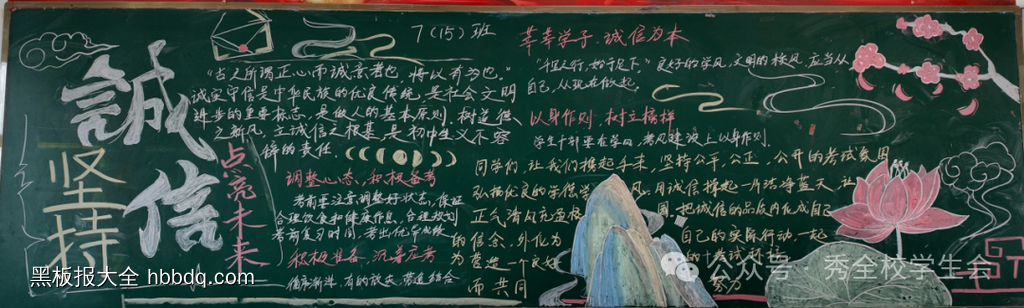 誠信
坚持
点亮未来
7(15)班
"古之所谓正心而诚意者也,将以有为也。"
诚实守信是中华民族的优良传统,是社会文明
进步的重要标志,是做人的基本原则,树道德
之新风,立诚信之根基是初中生义不容
辞的责任.
调整心态,积极备考
考前要注意调整好状态,保证
合理饮食和健康作息,合理规划
考前复习时间,考出优异成绩
积极准备、沉着应考
循序渐进,有的放矢,劳逸结合
莘莘学子、诚信为本
"千里之行,始于足下。"良好的学风,文明的校风,应当从
自己,从现在做起。
以身作则,树立榜样
学生干部要在学习,考风建设上以身作则.
同学们,让我们携起手来,坚持公平,公正,公开的考试氛围
弘扬优良的学 风.用诚信撑起一片洁净蓝天,让
正气清风充盈校 园,把诚信的品质内化成自己
的信念,外化为 自己的实际行动,一起
为营造一个良好 的考试环
而共同 努力
黑板报大全 hbbdq.com
公众号·秀全校学生会